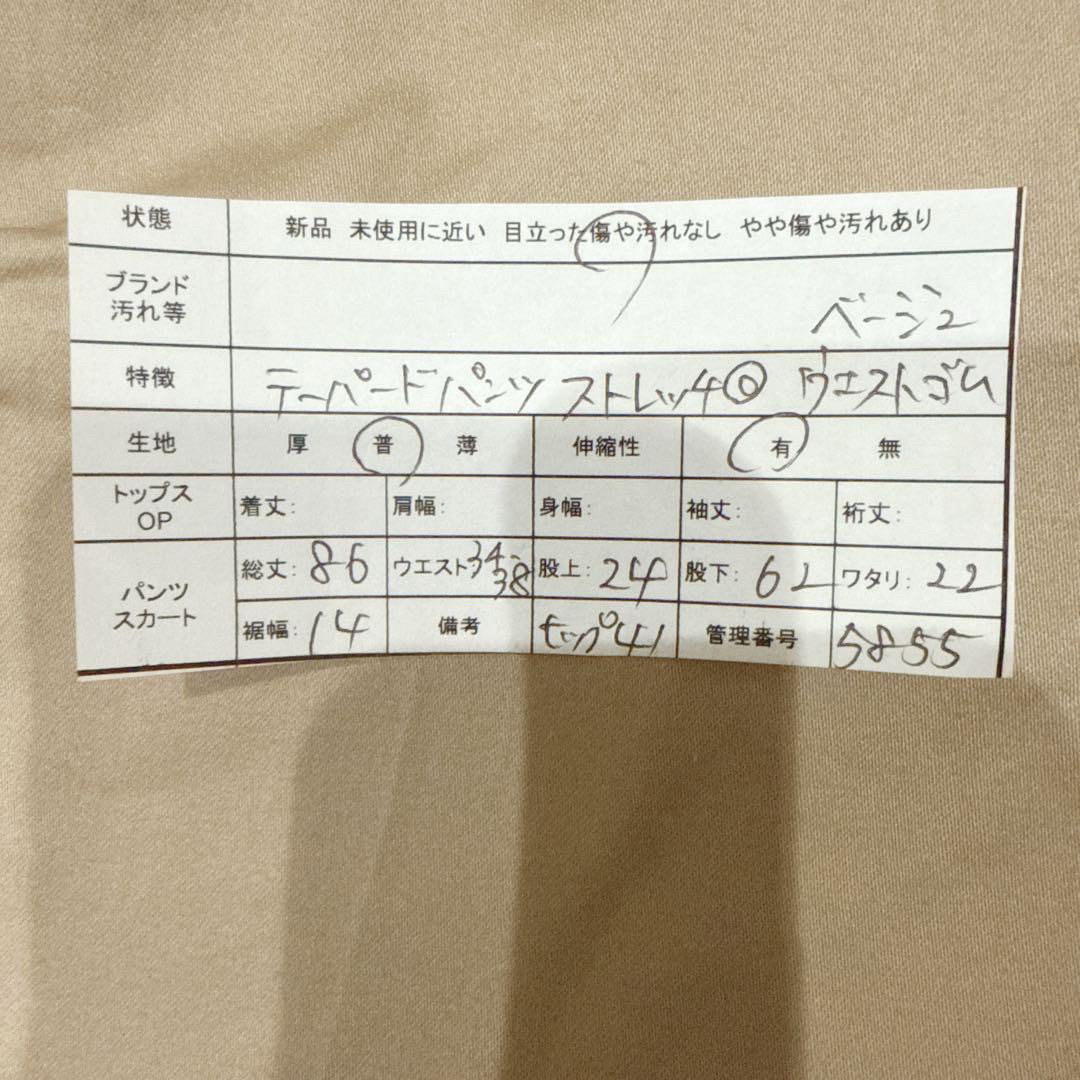 状態 新品 未使用に近い 目立った傷や汚れなし やや傷や汚れあり
ブランド
汚れ等
ベージュ
特徴 テーパードパンツ ストレッチ◎ ウエストゴム
生地 厚 普 薄 伸縮性 有 無
トップス
OP
着丈: 肩幅: 身幅: 袖丈: 裄丈:
パンツ
スカート
総丈: 86 ウエスト34-38 股上: 24 股下: 62 ワタリ: 22
裾幅: 14 備考 ヒップ41 管理番号 5855